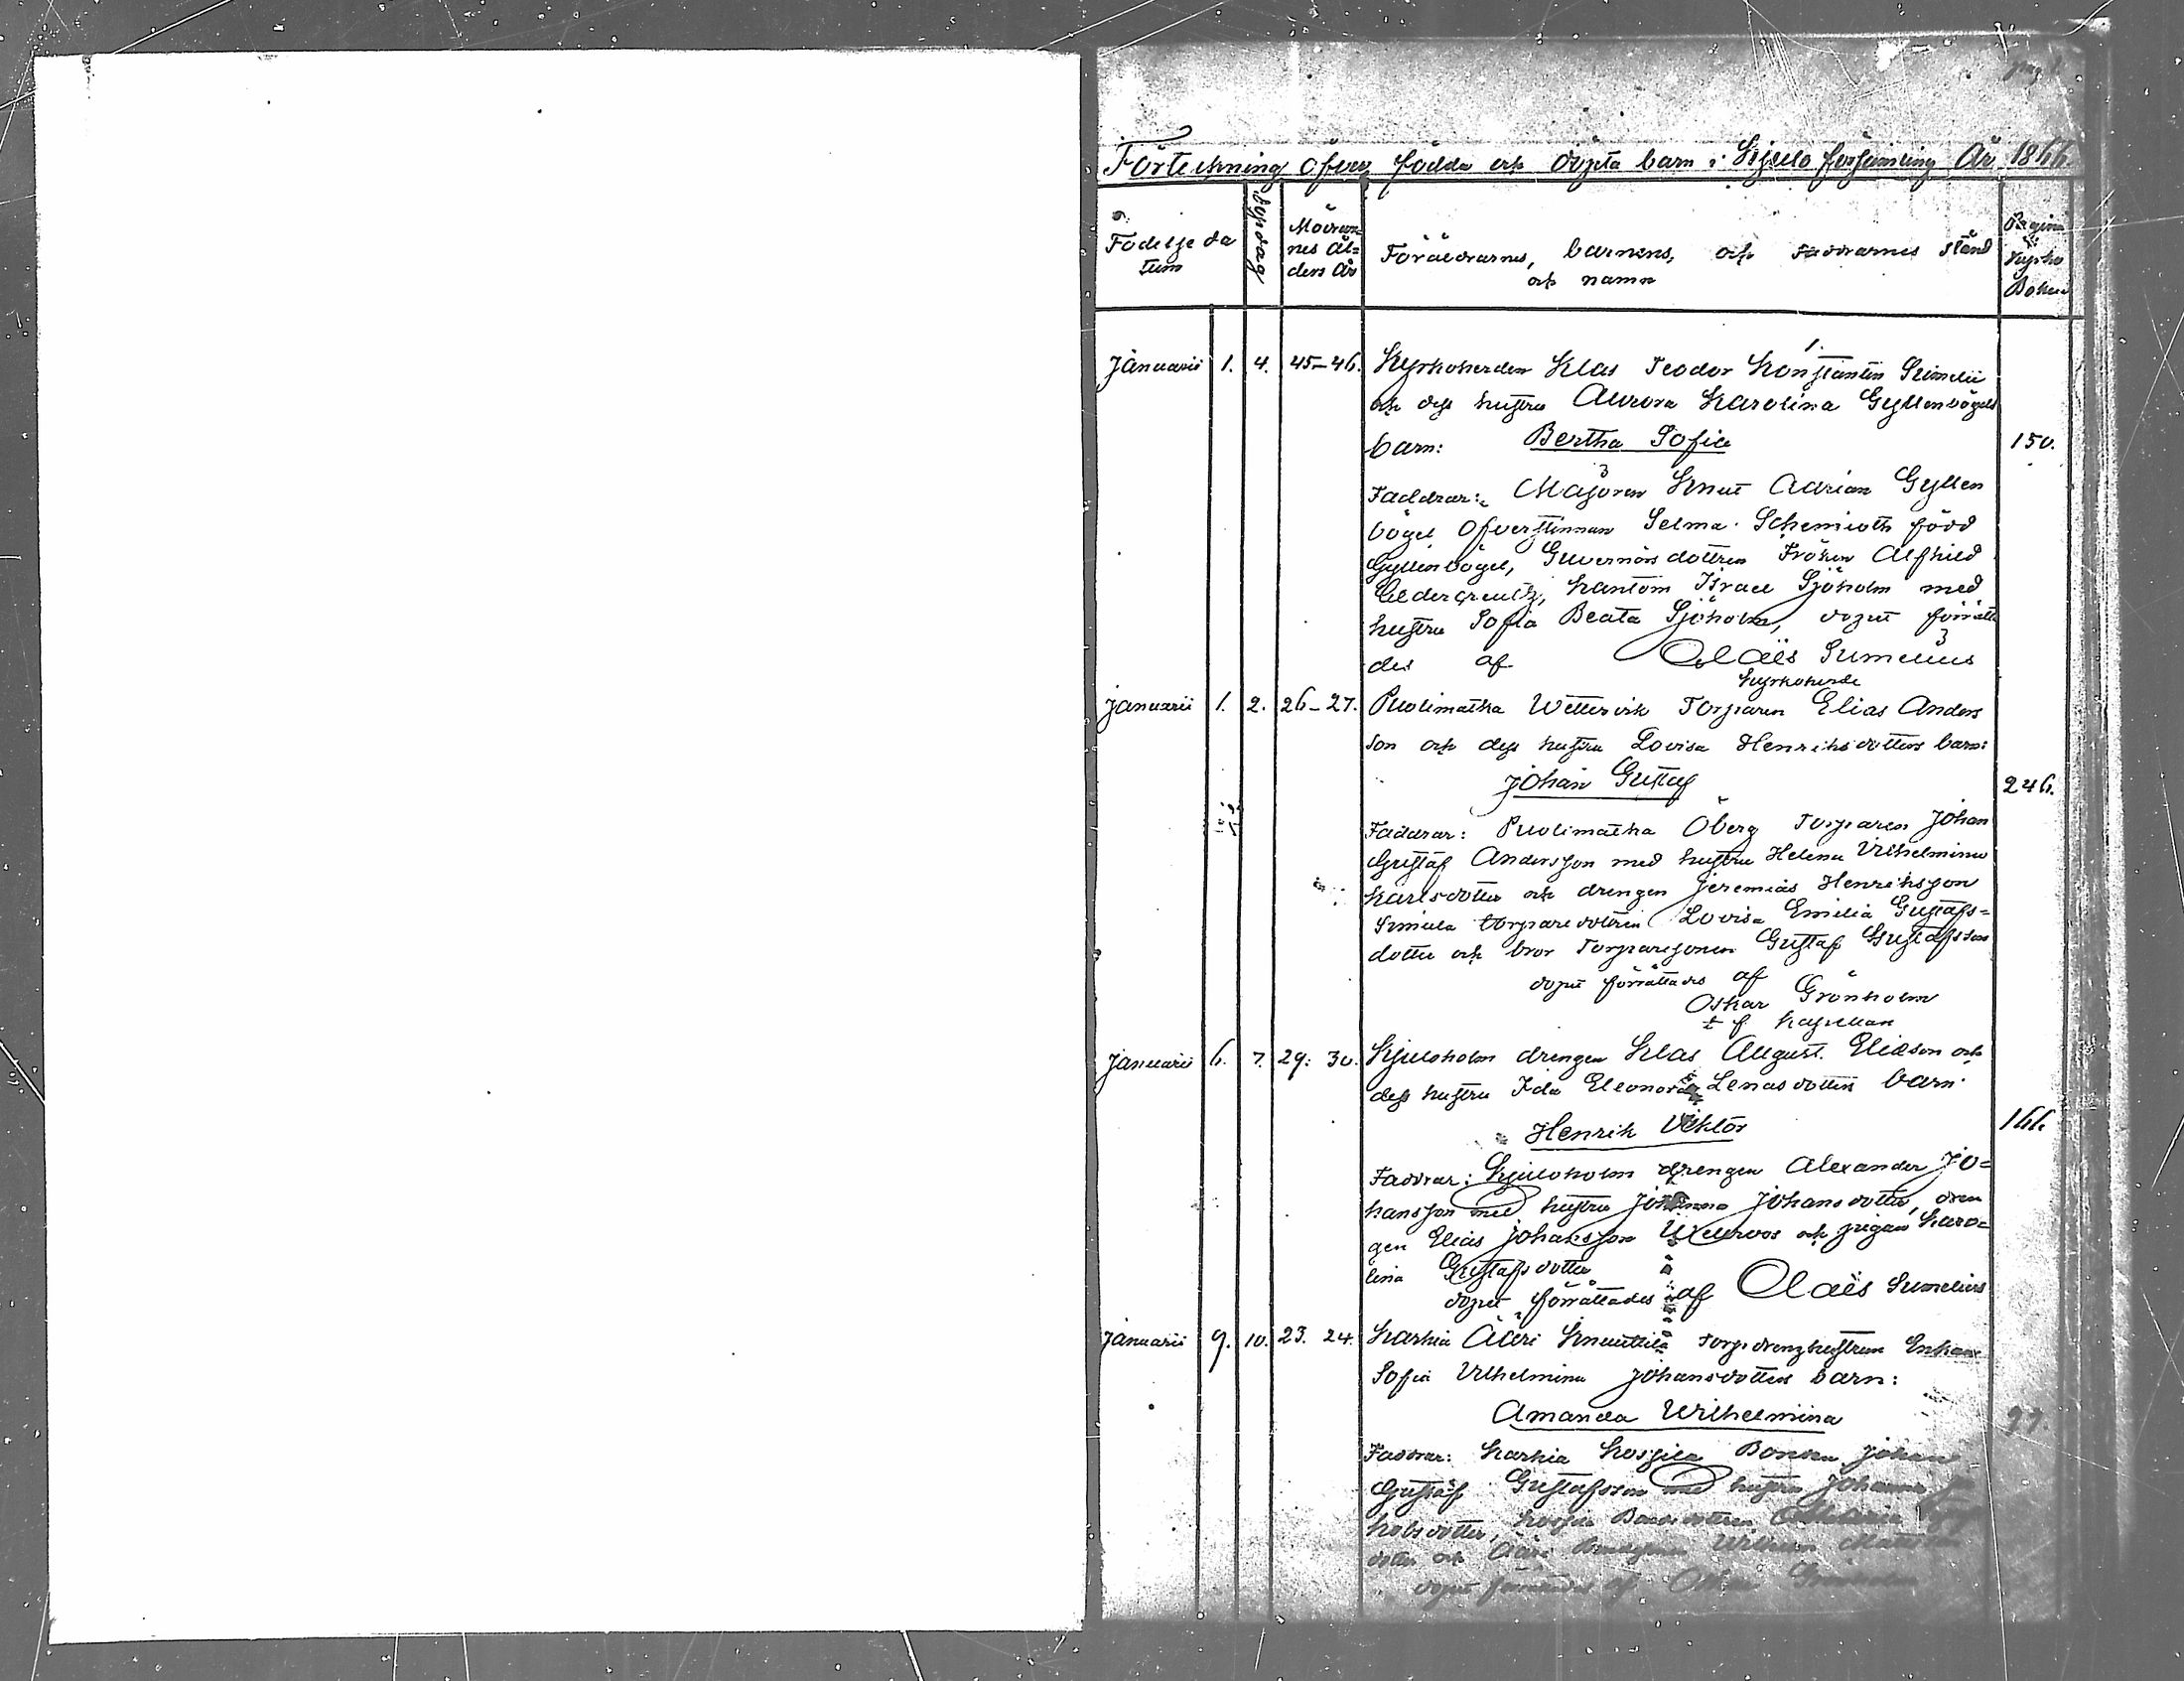 pag 1
Förteckning öfver födda och döpta barn i Kjulo församling År 1866.
Födelse da
tum
döpedag
Mödrar=
nes Ål=
ders År
Föräldrarnes, barnens, och Faddrarnes stånd
och namn
Pagina
i
Kyrko
Boken
1.
Januarii 1. 4. 45-46. Kyrkoherden Klas Teodor Konstantin Sumelii
och dess hustru Aurora Karolina Gyllenbögels
barn: Bertha Sofia 150.
Faddrar: Majoren Knut Adrian Gyllen
bögel Öfverstinnan Selma Schemioth född
Gyllenbögel, Guvernörsdottren Fröken Alfhild
Cedercreutz, Kantorn Israel Sjöholm med
hustru Sofia Beata Sjöholm, dopet förrätta
des af Claës Sumelius
Kyrkoherde
Januarii 1. 2. 26-27. Puolimatka Wettervik Torparen Elias Anders
son och dess hustru Lovisa Henriksdotters barn:
Johan Gustaf 246.
Faddrar: Puolimatka Öberg Torparen Johan
Gustaf Andersson med hustru Helena Vilhelmina
Karlsdotter och drengen Jeremias Henriksson
Simula torparedottren Lovisa Emilia Gustafs=
dotter och bror Torparesonen Gustaf Gustafsson
dopet förrättades af
Oskar Grönholm
t f Kapellan
Januarii 6. 7. 29: 30. Kjuloholm drengen Klas August Eliasson och
dess hustru Ida Eleonora Lenasdotters barn.
Henrik Viktor 166.
Faddrar: Kjuloholm drengen Alexander Jo=
hansson med hustru Johanna Johansdotter, dren
gen Elias Johansson och pigan Karo=
lina Gustafsdotter
dopet förrättades af Claës Sumelius
Januarii 9. 10. 23. 24. Karhia Ääri Knuuttila Torpdrenghustrun Enkan
Sofia Vilhelmina Johansdotters barn:
Amanda Wilhelmina 97.
Faddrar: Karhia Kospila Bonden Johan
Gustaf Gustafsson med hustru Johanna Ja
kobsdotter, Bondedottren
dotter och Ääri Wilhelm Matsson
dopet förrättades af Oskar Grönholm